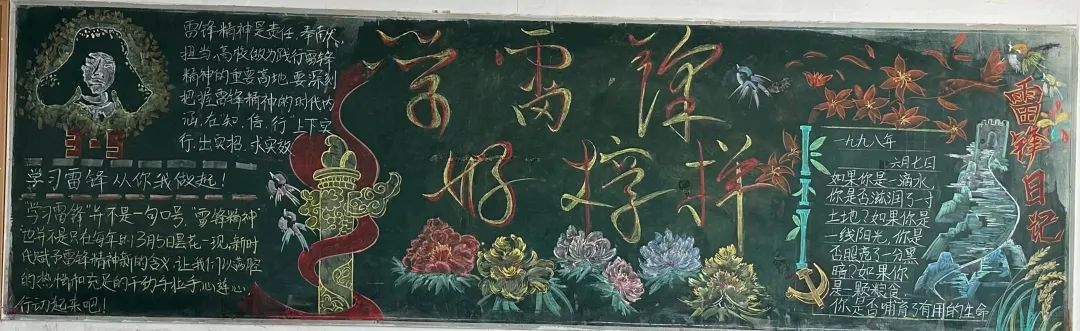 雷锋精神是责任、奉献、
担当、高校做为践行雷锋
精神的重要高地,要深刻
把握雷锋精神的时代内
涵,在知、信、行"上下实
行,出实招、求实效
3-5
学习雷锋从你我做起!
"学习雷锋"并不是一句口号,"雷锋精神"
也并不是只在每年的3月5日昙花一现,新时
代赋予雷锋精神新的含义,让我们以满腔
的热情和充足的干劲手拉手心连心,
行动起来吧!
学雷锋
好榜样
雷锋日记
一九九八年
六月七日
如果你是一滴水,
你是否滋润了一寸
土地?如果你是
一线阳光,你是
否照亮了一分黑
暗?如果你
是一颗粮食
你是否哺育了有用的生命